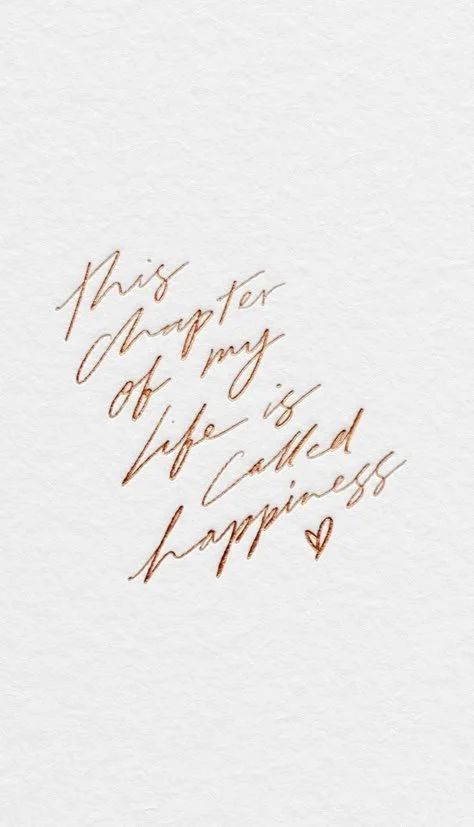 this
chapter
of my
life is
called
happiness